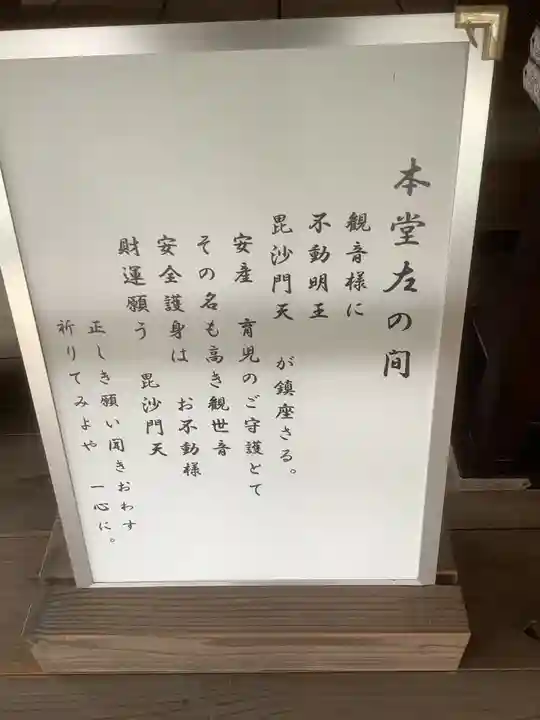 本堂左の間
観音様に
不動明王
毘沙門天 が鎮座さる。
安産 育児のご守護とて
その名も高き観世音
安全護身は お不動様
財運願う 毘沙門天
正しき願い聞きおわす
祈りてみよや 一心に。